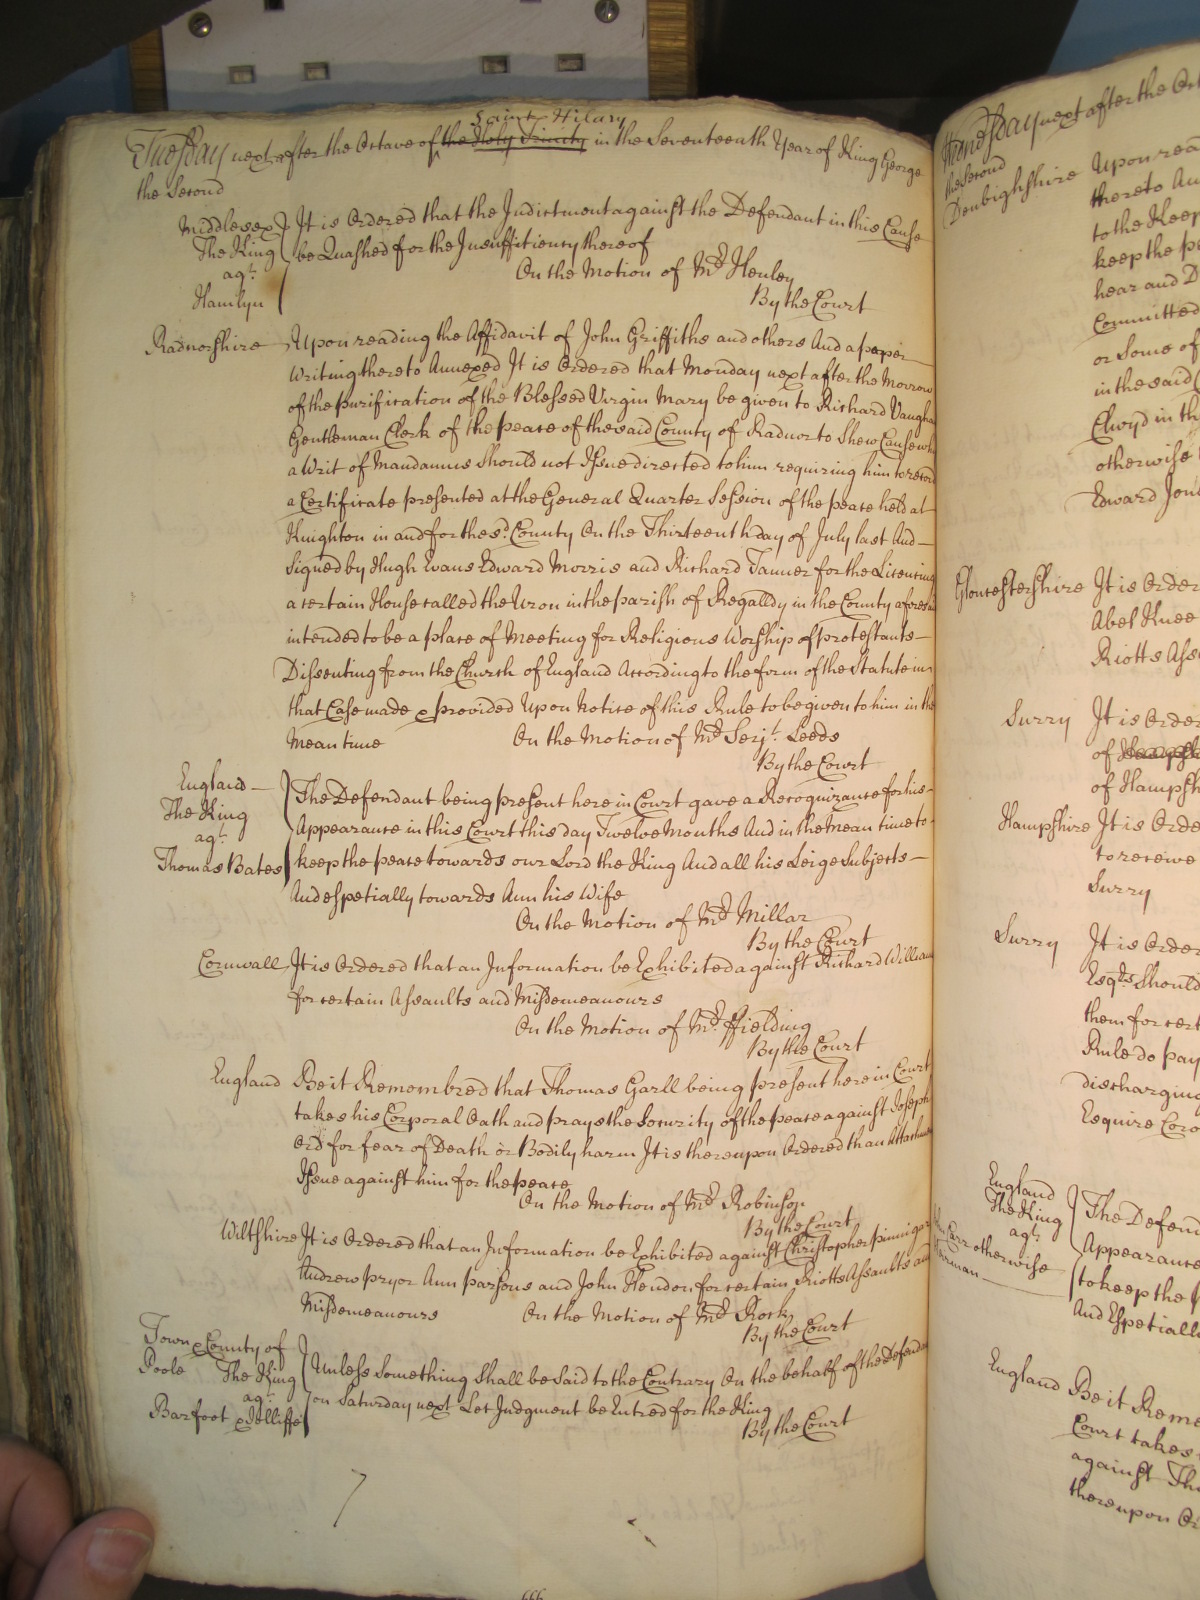 Saint Hilary
Tuesday next after the Octave of the Holy Trinity in the Seventeenth Year of King George
the Second
Middlesex It is Ordered that the Indictment against the Defendant in this Cause
The King be Quashed for the Insufficiency thereof
agt. On the Motion of Mr. Henley
Hamlyn By the Court
Radnorshire Upon reading the Affidavit of John Griffiths and others And a paper
Writing thereto Annexed It is Ordered that Monday next after the Morrow
of the purification of the Blessed Virgin Mary be given to Richard Vaughan
Gentleman Clerk of the peace of the said County of Radnor to Shew Cause why
a Writ of Mandamus Should not Issue directed to him requiring him to record
a Certificate presented at the General Quarter Session of the peace held at
Knighton in and for the sd. County On the Thirteenth day of July last And
Signed by Hugh Evans Edward Morris and Richard Tanner for the Licencing
a certain House called the in the parish of in the County aforesaid
intended to be a place of Meeting for Religious Worship of protestants
Dissenting from the Church of England According to the form of the Statute in
that Case made & provided Upon Notice of this Rule to be given to him in the
Mean time On the Motion of Mr. Serjt. Leeds
By the Court
England
The King
agt.
Thomas Bates
The Defendant being present here in Court gave a Recognizance for his
Appearance in this Court this day Twelve Months And in the Mean time to
keep the peace towards our Lord the King And all his Leige Subjects
And espetially towards Ann his Wife
On the Motion of Mr. Millar
By the Court
Cornwall It is Ordered that an Information be Exhibited against Richard William
for certain Assaults and Misdemeanours
On the Motion of Mr. ffielding
By the Court
England Be it Remembred that Thomas Garll being present here in Court
takes his Corporal Oath and prays the Security of the peace against Joseph
Ord for fear of Death or Bodily harm It is thereupon Ordered th an Attachment
Issue against him for the peace
On the Motion of Mr. Robinson
By the Court
Wiltshire It is Ordered that an Information be Exhibited against Christopher pinniger
Andrew pryor Ann parsons and John Hendon for certain Riotts Assaults and
Misdemeanours On the Motion of Mr. Rock
By the Court
Town & County of
Poole The King
agt.
Barfoot & Jolliffe
Unless Something Shall be Said to the Contrary On the behalf of the Defendants
on Saturday next Let Judgment be Entred for the King
By the Court
Wednesday next after the
the Second
Denbighshire Upon
thereto
to the
keep the
hear and
Committed
or Some of
in the said
Elwyd in
otherwise
Edward
Gloucestershire It is
Abel Knee
Riotts
Surry It is
of
of
Hampshire It is
to receive
Surry
Surry It is
Esqrs. Should
them for
Rule do pay
discharging
Esquire
England
The King
agt.
Carr otherwise
The
Appearance
to keep the
And
England Be it
Court takes
against
thereupon